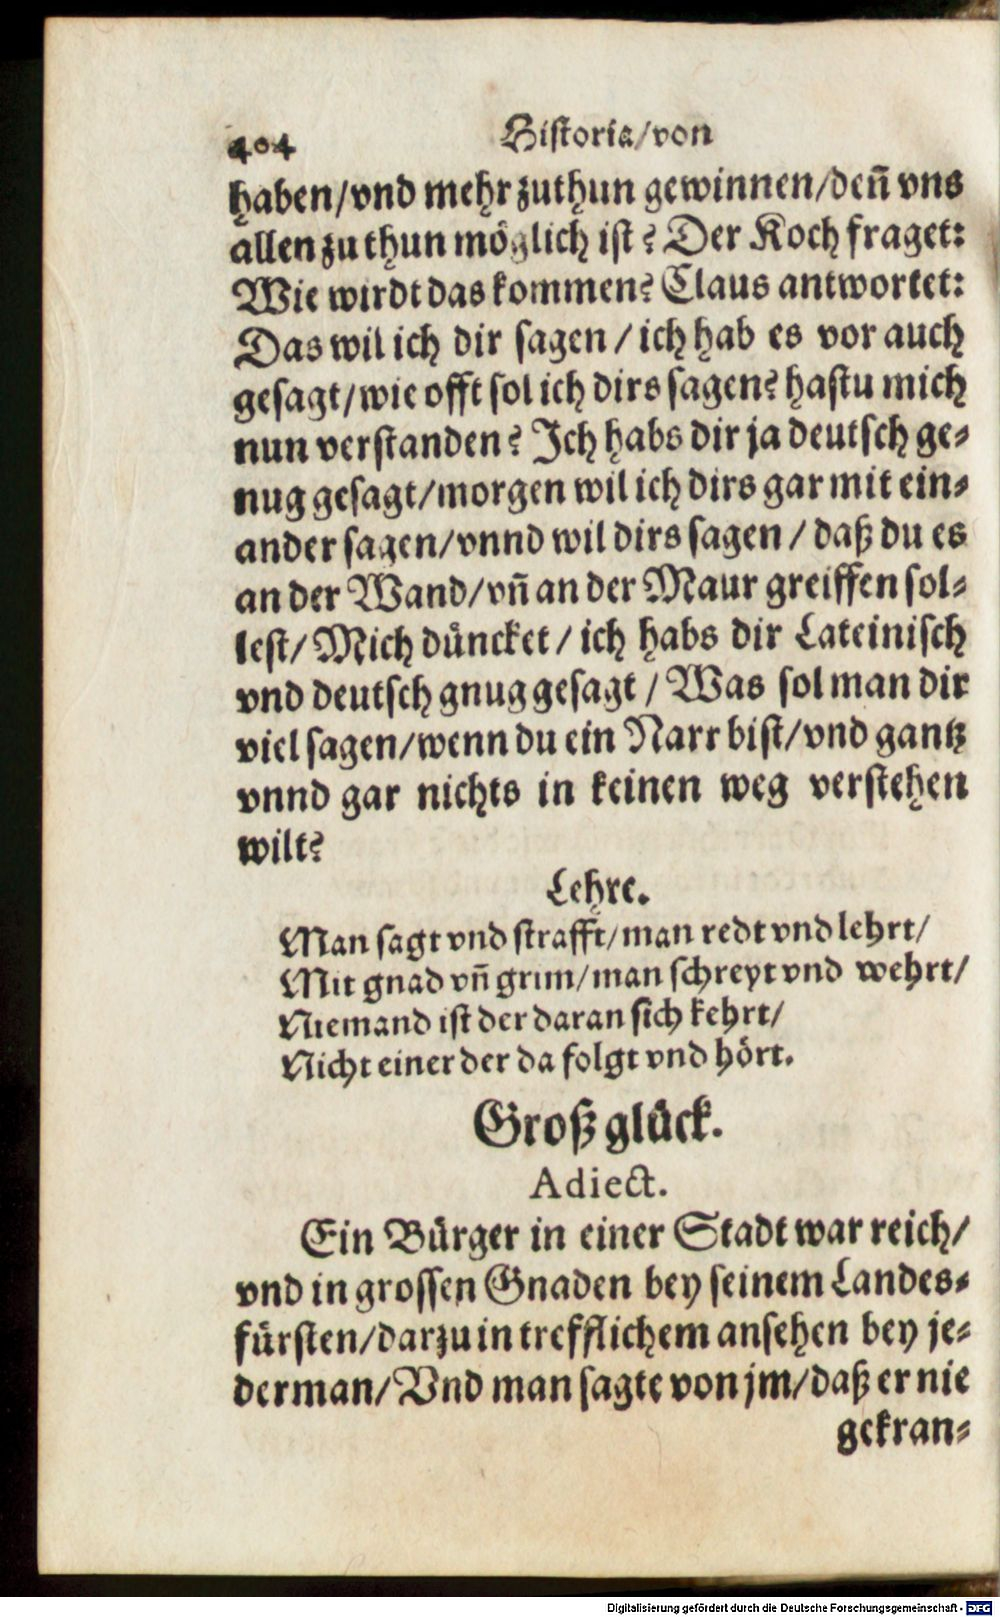 404 Historia/von
haben/vnd mehr zuthun gewinnen/deñ vns
allen zu thun möglich ist? Der Koch fraget:
Wie wirdt das kommen? Claus antwortet:
Das wil ich dir sagen / ich hab es vor auch
gesagt/wie offt sol ich dirs sagen? hastu mich
nun verstanden? Ich habs dir ja deutsch ge-
nug gesagt/morgen wil ich dirs gar mit ein-
ander sagen/vnnd wil dirs sagen / daß du es
an der Wand/vñ an der Maur greiffen sol-
lest/ Mich düncket / ich habs dir Lateinisch
vnd deutsch gnug gesagt / Was sol man dir
viel sagen/wenn du ein Narr bist/vnd gantz
vnnd gar nichts in keinen weg verstehen
wilt?
Lehre.
Man sagt vnd strafft/man redt vnd lehrt/
Mit gnad vñ grim/man schreyt vnd wehrt/
Niemand ist der daran sich kehrt/
Nicht einer der da folgt vnd hört.
Groß glück.
Adiect.
Ein Bürger in einer Stadt war reich/
vnd in grossen Gnaden bey seinem Landes-
fürsten/darzu in trefflichem ansehen bey je-
derman/Vnd man sagte von jm/daß er nie
gekran-
Digitalisierung gefördert durch die Deutsche Forschungsgemeinschaft - DFG